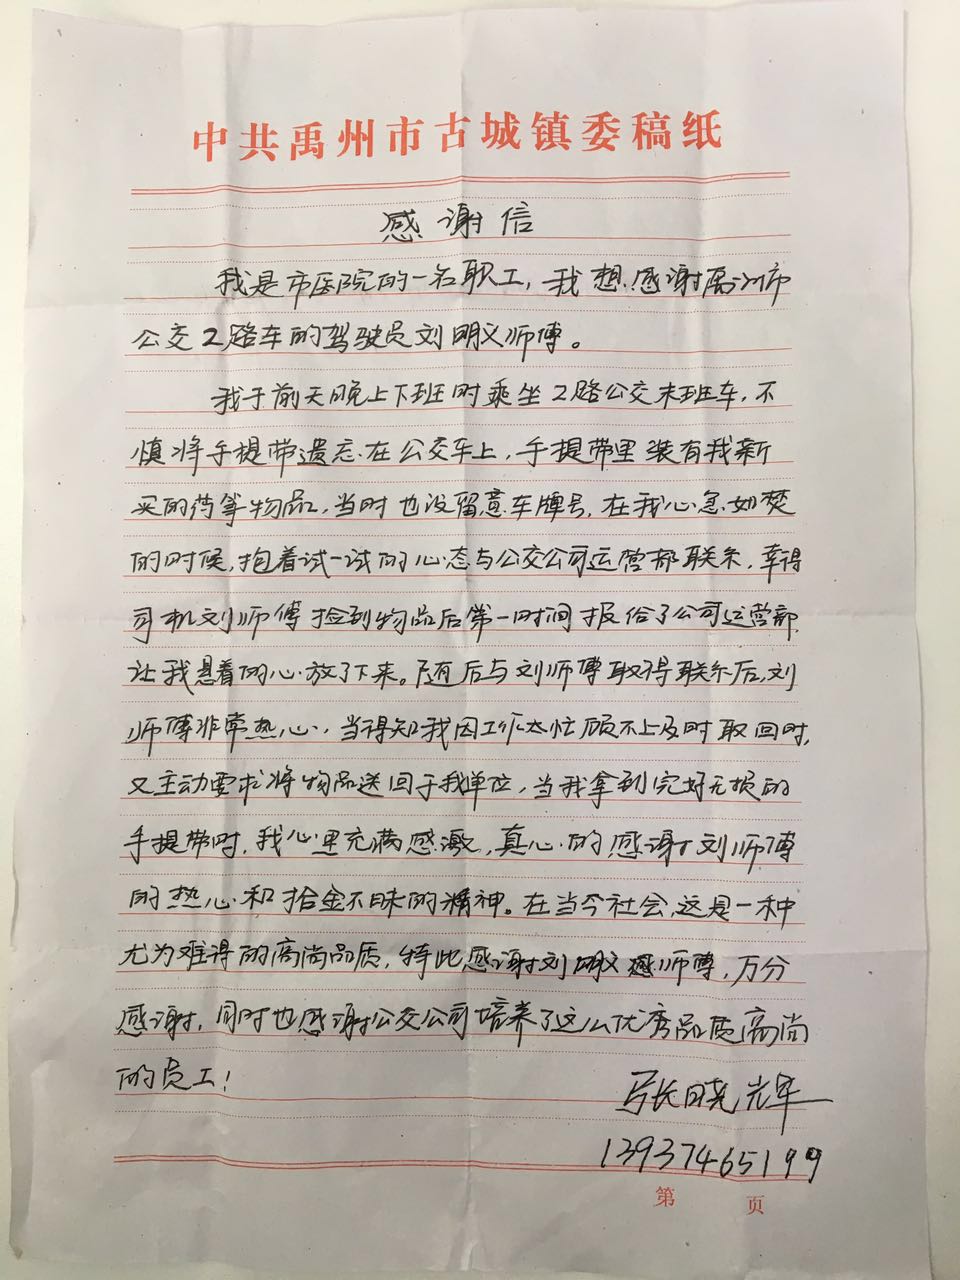 中共禹州市古城镇委稿纸
感谢信
我是市医院的一名职工，我想感谢禹州市
公交2路车的驾驶员刘明义师傅。
我于前天晚上下班时乘坐2路公交末班车，不
慎将手提带遗忘在公交车上，手提带里装有我新
买的药等物品，当时也没留意车牌号，在我心急如焚
的时候，抱着试一试的心态与公交公司运营部联系，幸得
司机刘师傅捡到物品后第一时间报给了公司运营部，
让我悬着的心放了下来。随后与刘师傅取得联系后，刘
师傅非常热心，当得知我因工作太忙顾不上及时取回时，
又主动要求将物品送回于我单位，当我拿到完好无损的
手提带时，我心里充满感激，真心的感谢刘师傅
的热心和拾金不昧的精神。在当今社会，这是一种
尤为难得的高尚品质，特此感谢刘明义师傅，万分
感谢，同时也感谢公交公司培养了这么优秀品质高尚
的员工！
张晓光
13937465199
第 页